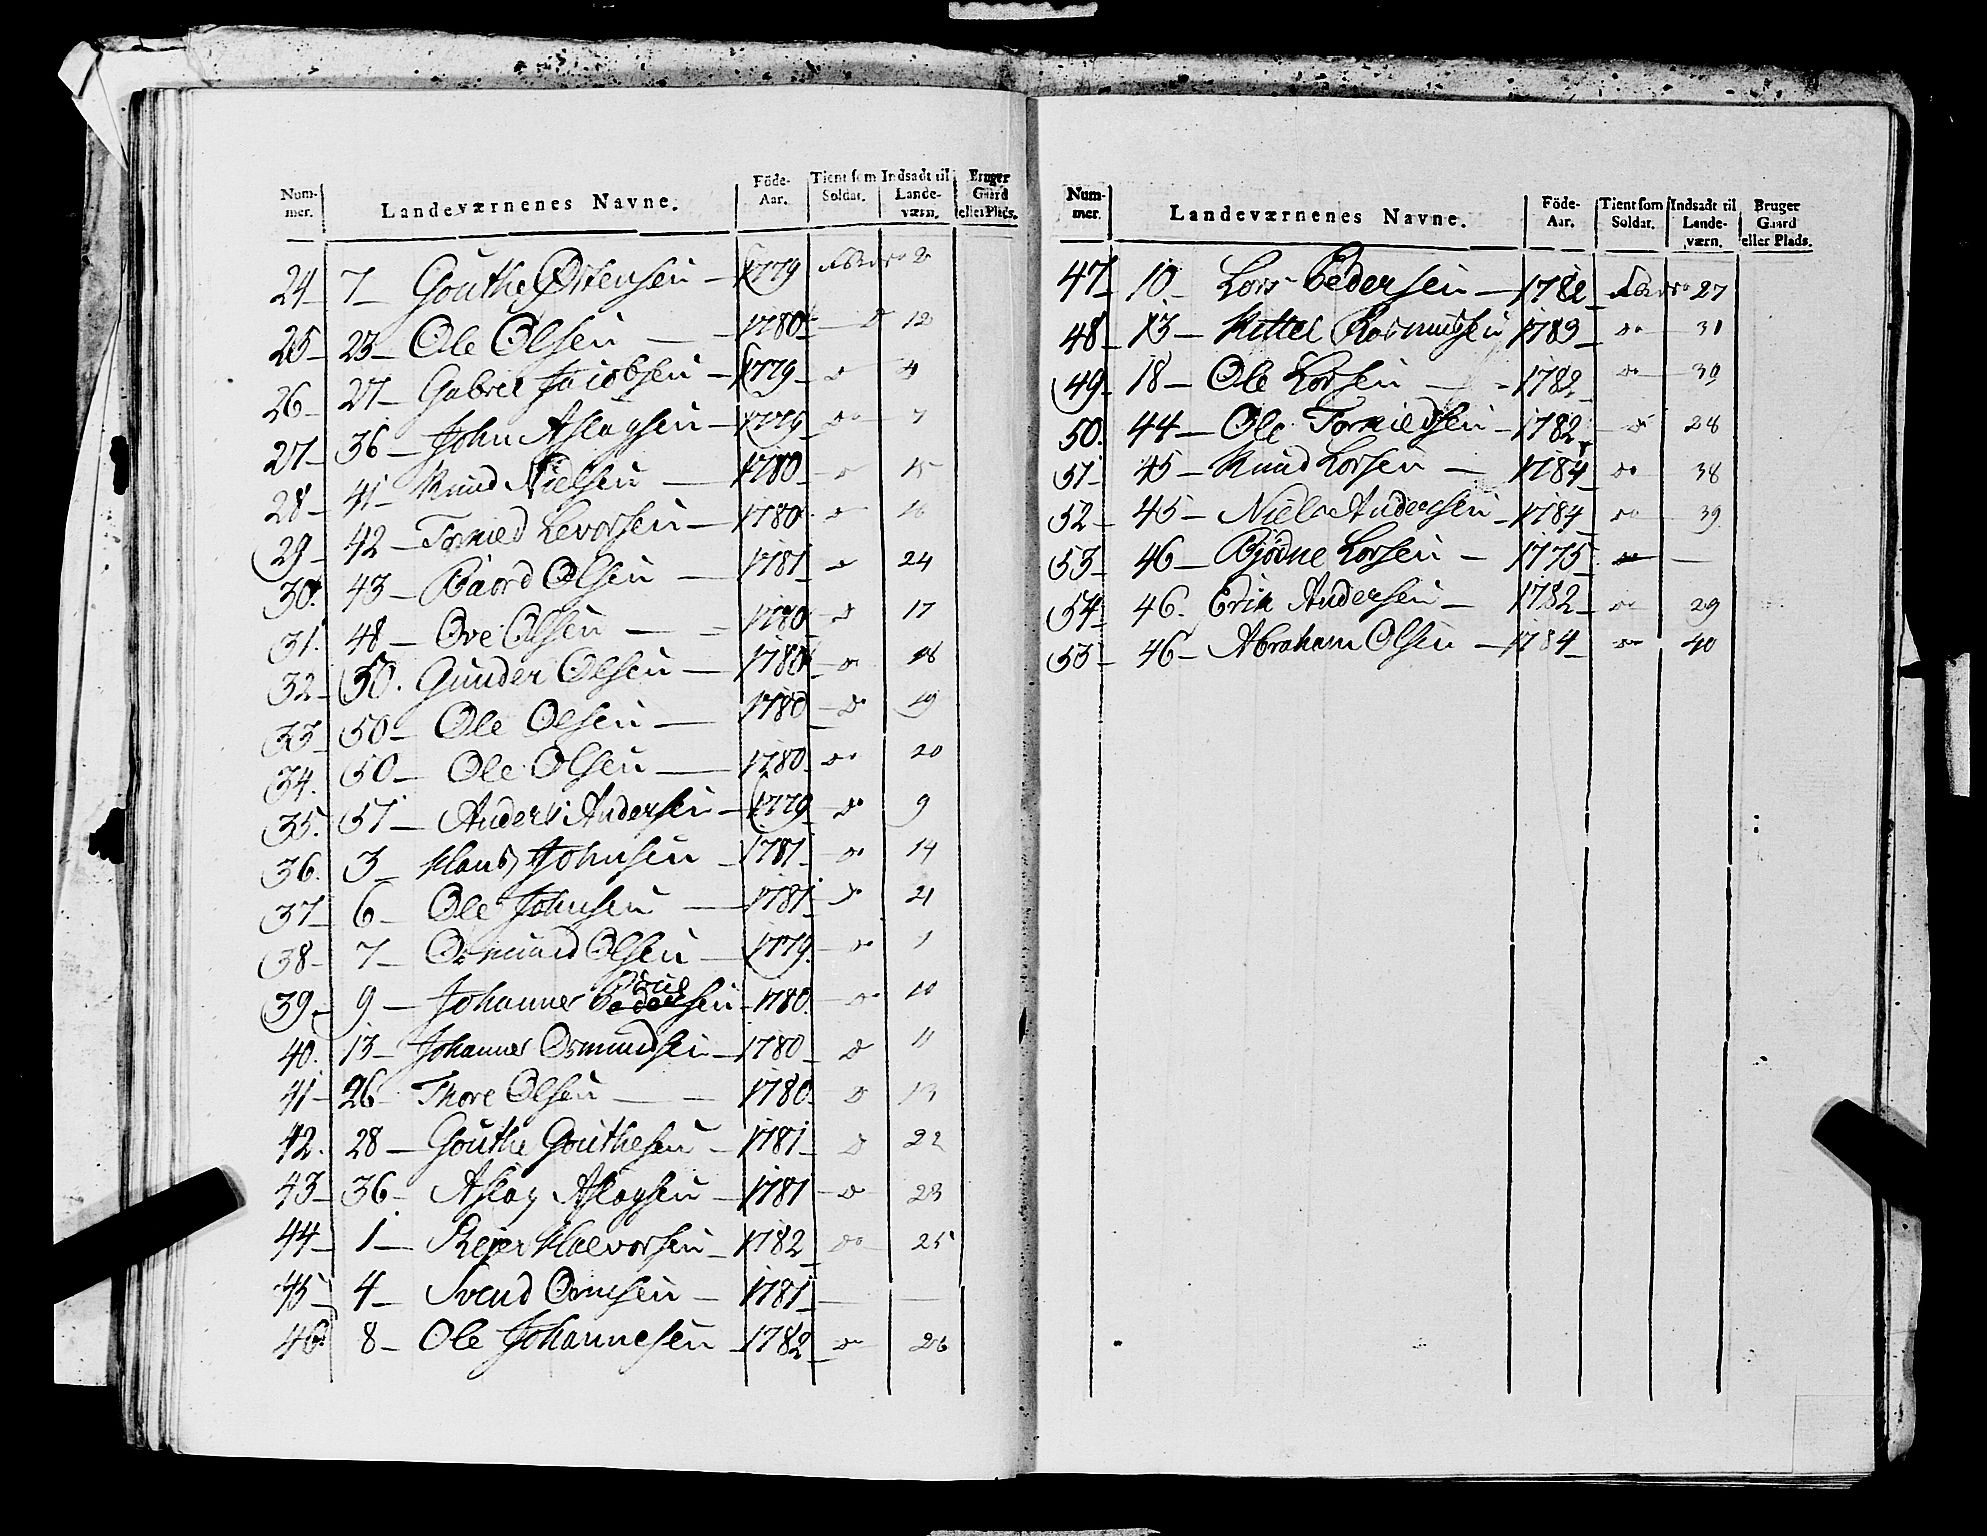 Num-mer. Landeværnenes Navne. Föde-Aar. Tient som Soldat. Indsadt til Lande-værn. Bruger Gaard eller Plads.
24 7 Gouthe Østensen 1779 2
25 23 Ole Olsen 1780 do 12
26 27 Gabriel Jacobsen 1779 do 4
27 36 John Aslagsen 1779 do 7
28 41 Knud Nielsen 1780 do 15
29 42 Tormed Levorsen 1780 do 16
30. 43 Baard Olsen 1781 do 24
31. 48 Ove Olsen 1780 do 17
32 50. Gunder Olsen 1780 do 18
33 50 Ole Olsen 1780 do 19
34. 50 Ole Olsen 1780 do 20
35. 51 Anders Andersen 1779 do 9
36. 3 Hans Johnsen 1781 do 14
37 6 Ole Johnsen 1781 do 21
38 7 Osmund Olsen 1779 do 1
39 9 Johannes Pedersen 1780 do 10
40. 13 Johannes Osmundsen 1780 do 11
41 26 Thore Olsen 1780 do 13
42. 28 Gouthe Gouthesen 1781 do 22
43 36 Aslag Aslagsen 1781 do 23
44 1 Reier Halvorsen 1782 do 25
45 4 Svend Omsen 1781
46. 8 Ole Johannesen 1782 do 26
Num-mer. Landeværnenes Navne. Föde-Aar. Tient som Soldat. Indsadt til Lande-værn. Bruger Gaard eller Plads.
47 10 Lars Pedersen 1782 27
48 13 Kittel Rasmussen 1783 do 31
49 18 Ole Larsen 1782 do 30
50. 44 Ole Tormedsen 1782 do 28
51 45 Knud Larsen 1784 do 38
52 45 Niels Andersen 1784 do 39
53 46 Biødne Larsen 1775
54 46. Erik Andersen 1782 do 29
55 46 Abraham Olsen 1784 do 40